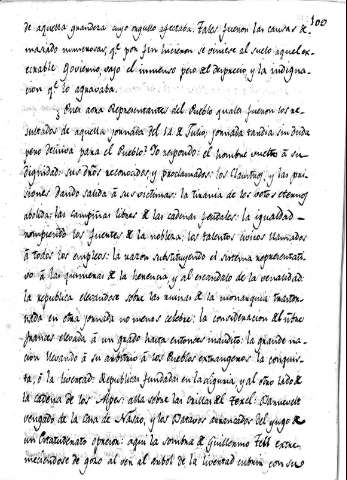 100
de aquella grandeza cuyo orgullo afectaba. Tales fueron las causas de-
masiado numerosas, qᵉ por fin hicieron se viniese al suelo aquel ex-
ecrable Govierno, vajo el inmenso peso del desprecio, y la indigna-
cion qᵉ lo agravaba.
¿Quer aora Representantes del Pueblo quales fueron los re-
sultados de aquella jornada del 14 de Julio, jornada tardia sin duda
pero decisiva para el Pueblo? Yo respondo: el hombre vuelto á su
dignidad: sus dros reconocidos y proclamados: los claustros, y las pri-
siones dando salida á sus victimas: la tirania de los votos eternos
abolida: las campiñas libres de las cadenas feudales: la igualdad
rompiendo las fuentes de la nobleza: los talentos civicos llamados
á todos los empleos: la razon substituyendo el sistema representati-
vo á las quimeras de la herencia, y al escandalo de la venalidad:
la republica elevandose sobre las ruinas de la monarquia trastor-
nada en otra jornada no menos celebre: la consideracion del nombre
frances elevada á un grado hasta entonces inaudito: la grande na-
cion llevando á su arbitrio á los Pueblos extrangeros la conquis-
ta, ó la livertad: Republicas fundadas en la Liguria y al otro lado de
la cadena de los Alpes: alla sobre las orillas de Texel: Barnevelt
vengado de la Casa de Nasao, y los Batavos arrancados del yugo de
un Estatuderato opresor: aqui la sombra de Guillermo Tell extre-
meciendose de gozo al ver al arbol de la livertad cubrir con su